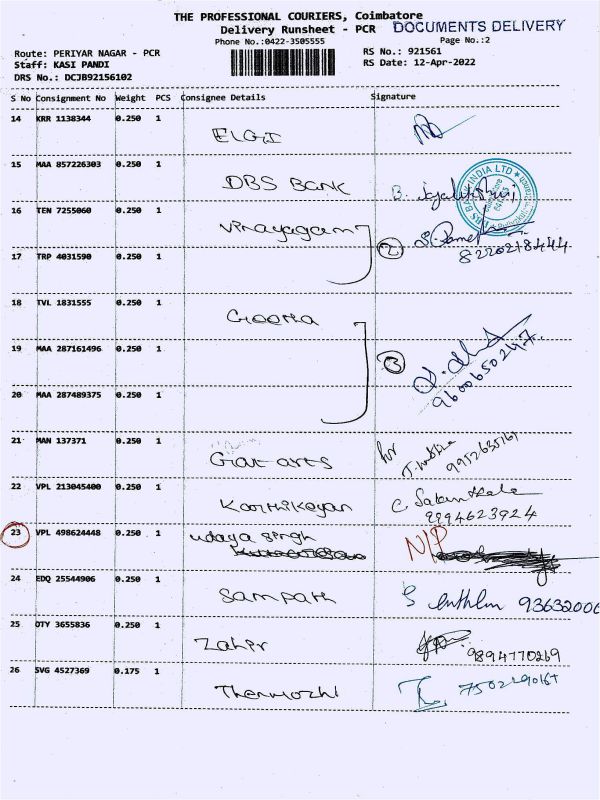 THE PROFESSIONAL COURIERS, Coimbatore
Delivery Runsheet - PCR DOCUMENTS DELIVERY
Phone No.:0422-3505555 Page No.:2
Route: PERIYAR NAGAR - PCR RS No.: 921561
Staff: KASI PANDI RS Date: 12-Apr-2022
DRS No.: DCJB92156102
S No Consignment No Weight PCS Consignee Details Signature
14 KRR 1138344 0.250 1
ELGI
15 MAA 857226303 0.250 1
DBS BANK B.
DBS BANK INDIA LTD
16 TEN 7255060 0.250 1
Vinayagam 2 8220218444
17 TRP 4031590 0.250 1
18 TVL 1831555 0.250 1
Geetha
19 MAA 287161496 0.250 1
3 9600650247
20 MAA 287489375 0.250 1
21 MAN 137371 0.250 1
arts for
22 VPL 213045400 0.250 1
Karthikeyan C
9994623924
23 VPL 498624448 0.250 1
udaya singh N/P
24 EDQ 25544906 0.250 1
Sampath 93632006
25 OTY 3655836 0.250 1
Zahir 9894770269
26 SVG 4527369 0.175 1
Thenmozhi